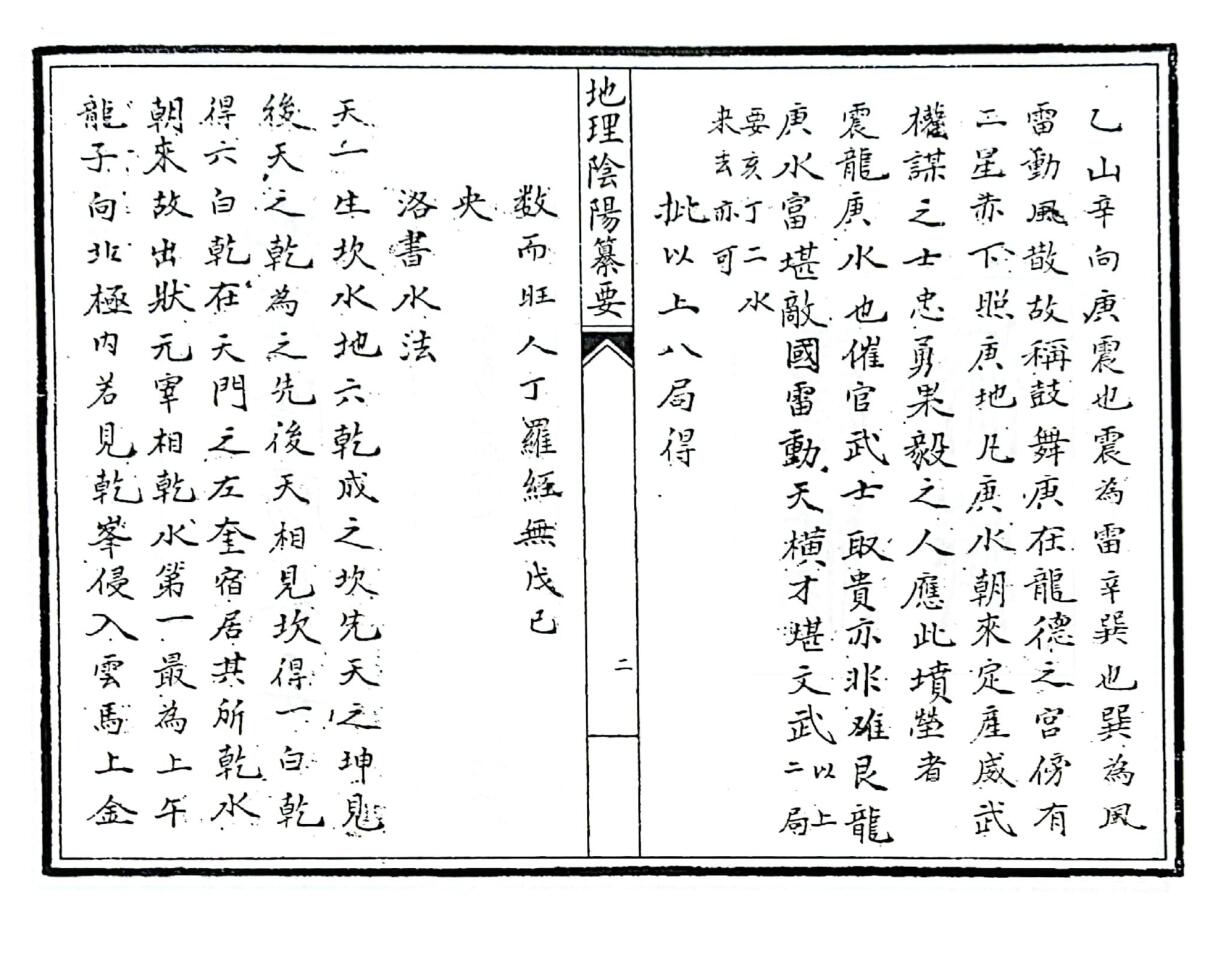 乙山辛向庚震也震為雷辛巽也巽為風
雷動風散故稱鼓舞庚在龍德之宮傍有
二星赤下照庚地凡庚水朝來定產威武
權謀之士忠勇果毅之人應此墳塋者
震龍庚水也催官武士取貴亦非难艮龍
庚水富堪敵國雷動天橫才堪文武以上二局
要亥丁二水
来去亦可
批以上八局得
地理陰陽纂要
二
数而旺人丁羅經無戊己
央
洛書水法
天一生坎水地六乾成之坎先天之坤見
後天之乾為之先後天相見坎得一白乾
得六白乾在天門之左奎宿居其所乾水
朝來故出狀元宰相乾水第一最為上午
龍子向北極内若見乾峯侵入雲馬上金